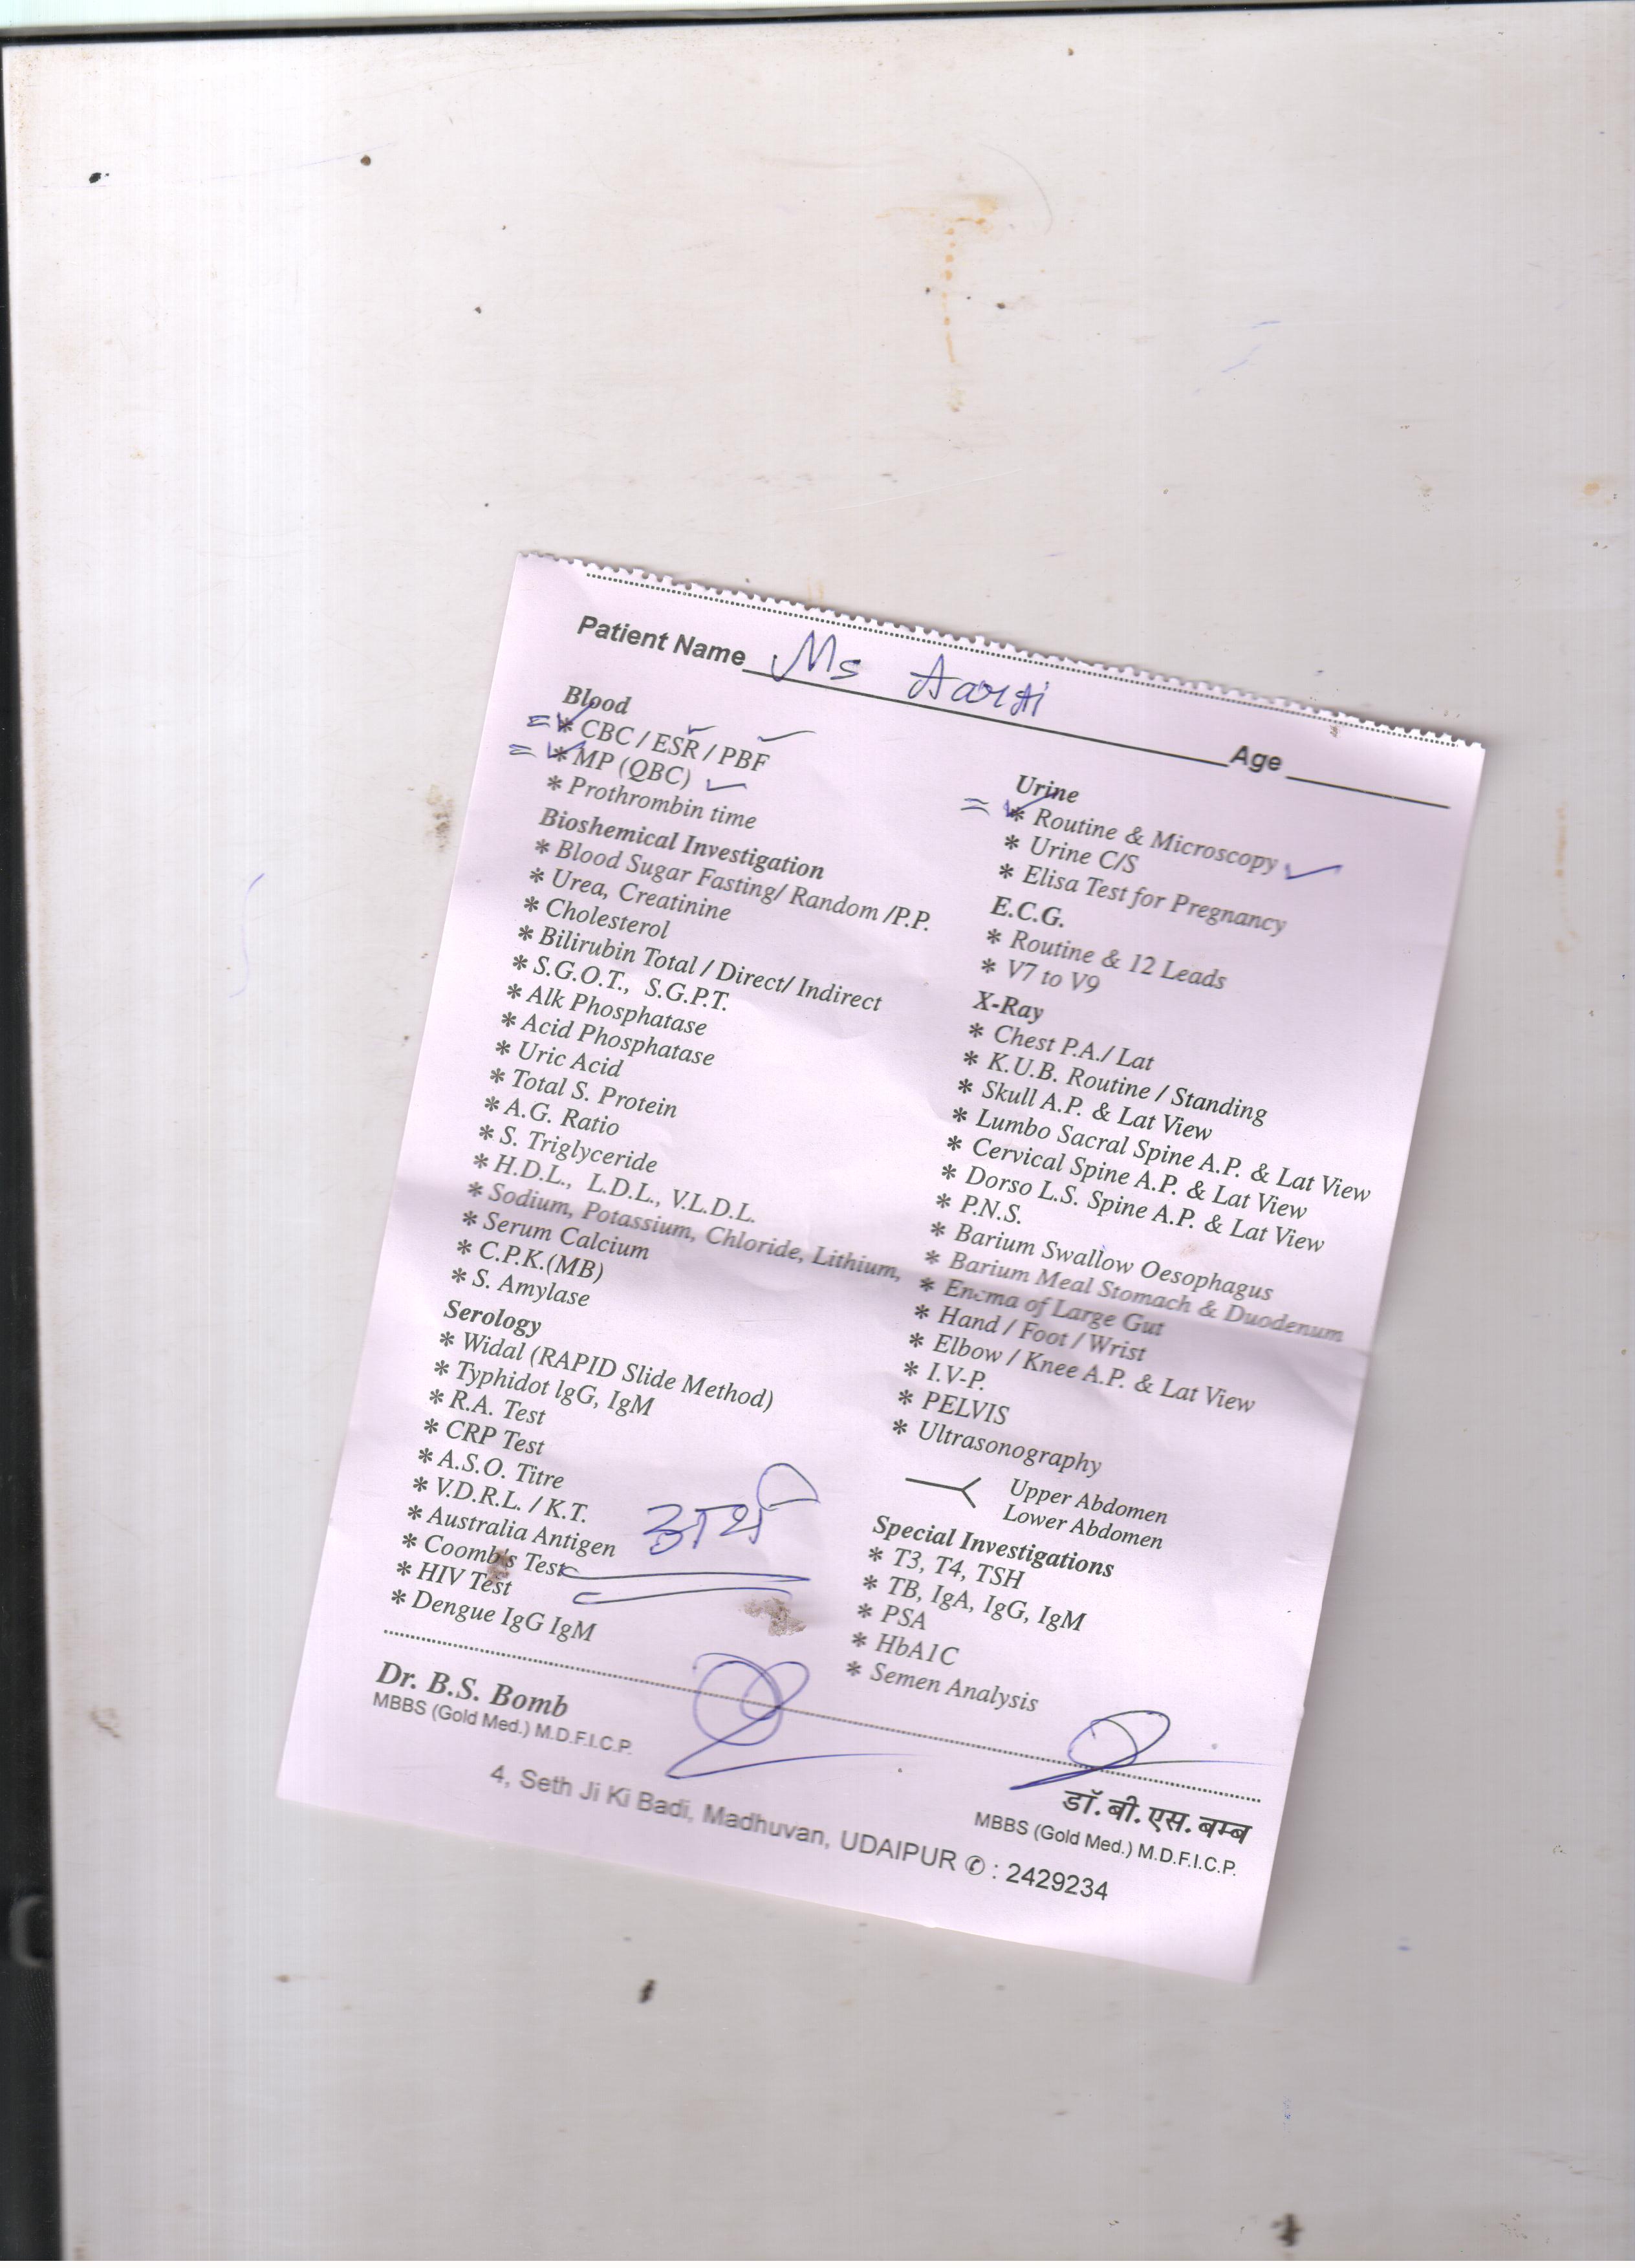 Patient Name Ms Aarti
Age
Blood
* CBC / ESR / PBF
* MP (QBC)
* Prothrombin time
Bioshemical Investigation
* Blood Sugar Fasting/ Random /P.P.
* Urea, Creatinine
* Cholesterol
* Bilirubin Total / Direct/ Indirect
* S.G.O.T., S.G.P.T.
* Alk Phosphatase
* Acid Phosphatase
* Uric Acid
* Total S. Protein
* A.G. Ratio
* S. Triglyceride
* H.D.L., L.D.L., V.L.D.L.
* Sodium, Potassium, Chloride, Lithium,
* Serum Calcium
* C.P.K.(MB)
* S. Amylase
Serology
* Widal (RAPID Slide Method)
* Typhidot lgG, IgM
* R.A. Test
* CRP Test
* A.S.O. Titre
* V.D.R.L. / K.T.
* Australia Antigen
* Coomb's Test
* HIV Test
* Dengue IgG IgM
Urine
* Routine & Microscopy
* Urine C/S
* Elisa Test for Pregnancy
E.C.G.
* Routine & 12 Leads
* V7 to V9
X-Ray
* Chest P.A./ Lat
* K.U.B. Routine / Standing
* Skull A.P. & Lat View
* Lumbo Sacral Spine A.P. & Lat View
* Cervical Spine A.P. & Lat View
* Dorso L.S. Spine A.P. & Lat View
* P.N.S.
* Barium Swallow Oesophagus
* Barium Meal Stomach & Duodenum
* Enema of Large Gut
* Hand / Foot / Wrist
* Elbow / Knee A.P. & Lat View
* I.V-P.
* PELVIS
* Ultrasonography
Upper Abdomen
Lower Abdomen
Special Investigations
* T3, T4, TSH
* TB, IgA, IgG, IgM
* PSA
* HbA1C
* Semen Analysis
Dr. B.S. Bomb
MBBS (Gold Med.) M.D.F.I.C.P.
डॉ. बी. एस. बम्ब
MBBS (Gold Med.) M.D.F.I.C.P.
4, Seth Ji Ki Badi, Madhuvan, UDAIPUR ✆ : 2429234